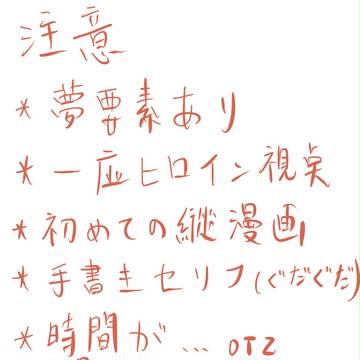 注意
* 夢要素あり
* 一応ヒロイン視点
* 初めての縦漫画
* 手書きセリフ(ぐだぐだ)
* 時間が… OTZ